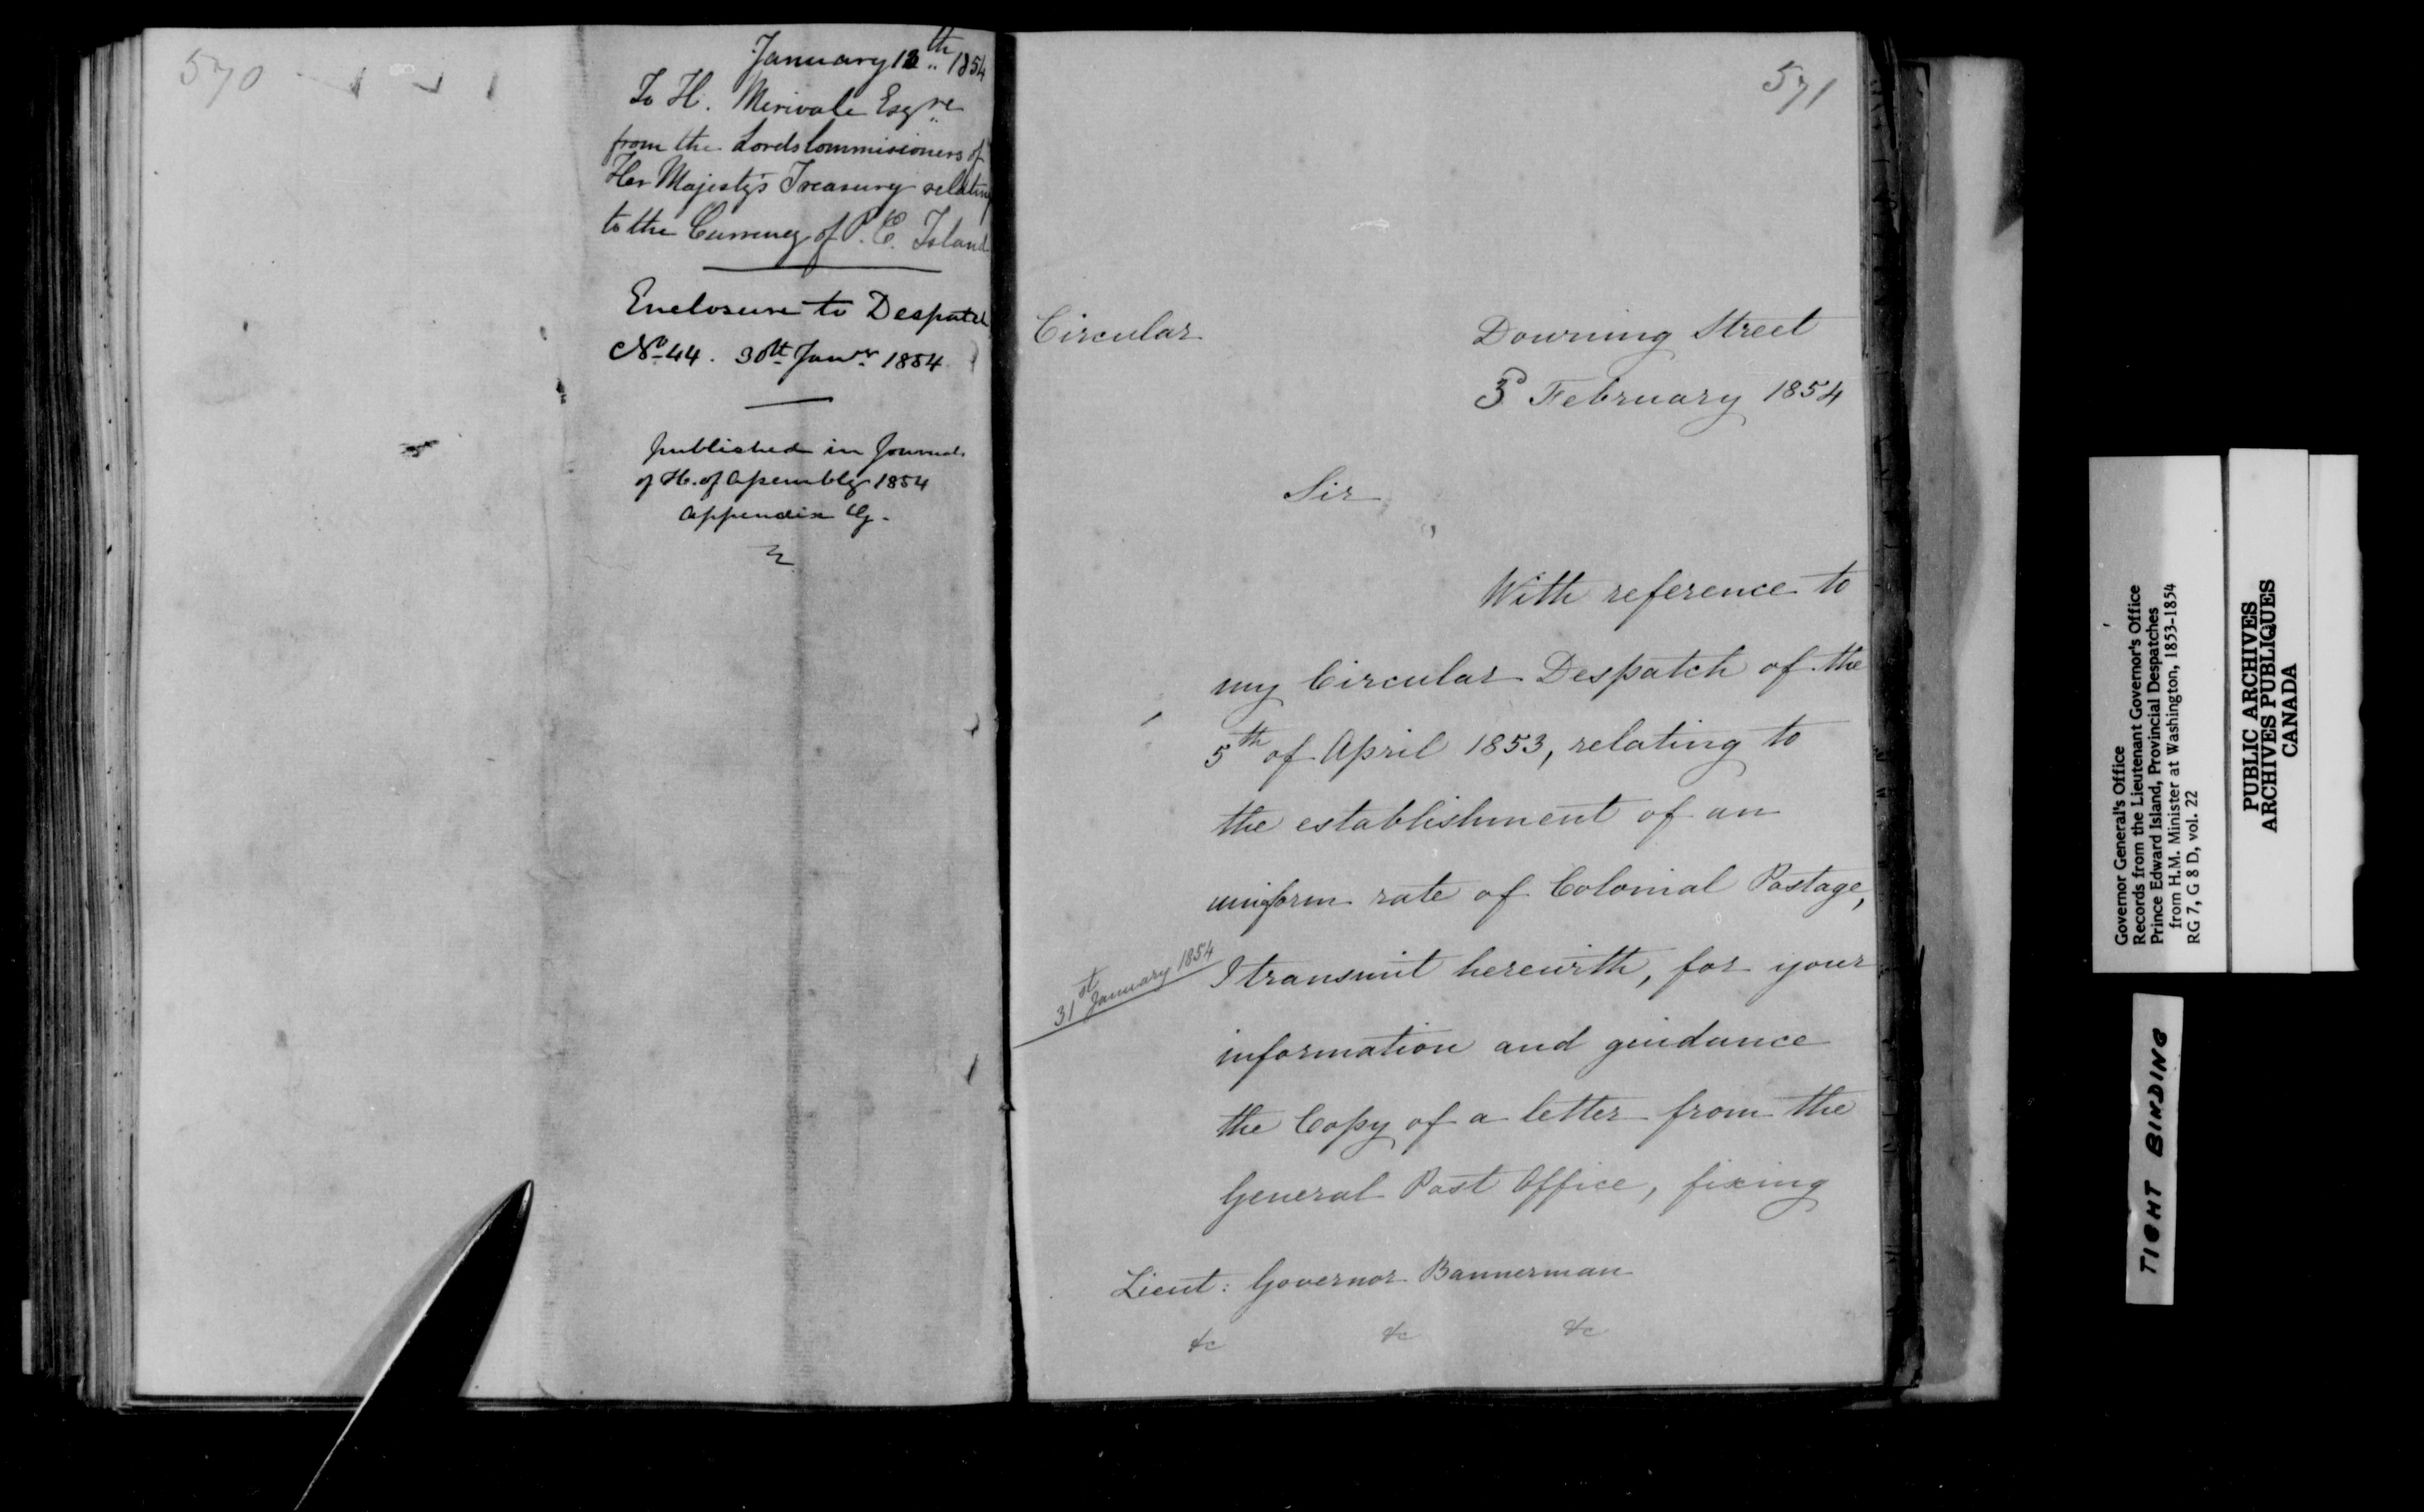 570
January 13th 1854
To H. Merivale Esqre
from the Lords Commissioners of
Her Majesty's Treasury relating
to the Currency of P. E. Island
Enclosure to Despatch
No. 44. 30th Jany 1854
published in Journal
of H. of Assembly 1854
Appendix G.
571
Circular
Downing Street
3 February 1854
Sir
With reference to
my Circular Despatch of the
5th of April 1853, relating to
the establishment of an
uniform rate of Colonial Postage,
31st January 1854
I transmit herewith, for your
information and guidance
the Copy of a letter from the
General Post Office, fixing
Lieut: Governor Bannerman
&c &c &c
Governor General's Office
Records from the Lieutenant Governor's Office
Prince Edward Island, Provincial Despatches
from H.M. Minister at Washington, 1853-1854
RG 7, G 8 D, vol. 22
PUBLIC ARCHIVES
ARCHIVES PUBLIQUES
CANADA
TIGHT BINDING